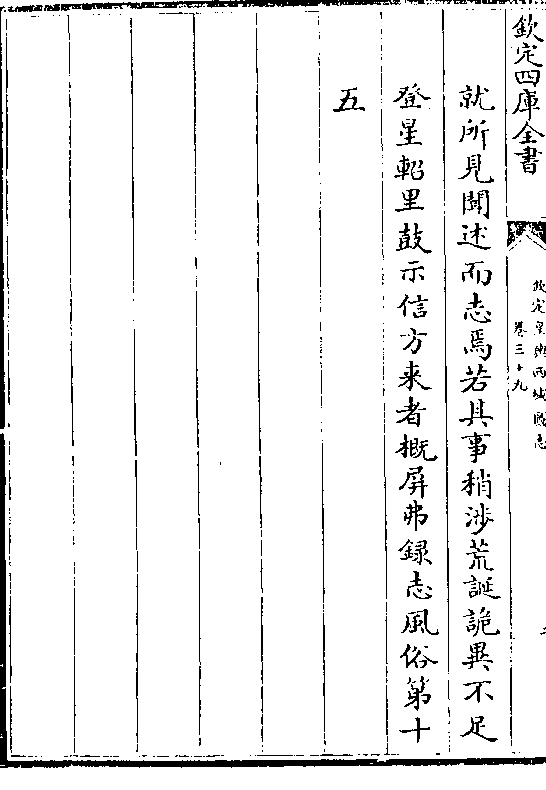 欽定四庫全書
欽定皇輿西域圖志
卷三十九
就所見聞述而志焉若其事稍涉荒誕詭異不足
登星軺里鼓示信方來者概屏弗録志風俗第十
五